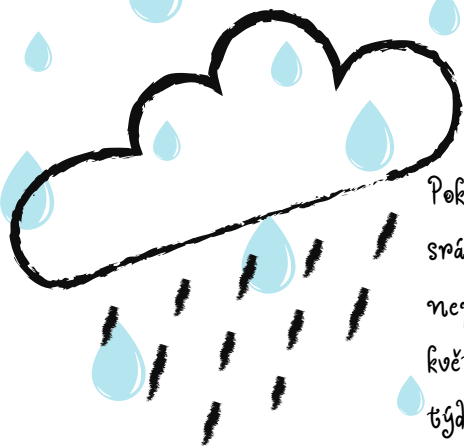 Pok
srá
nep
kvě
týd